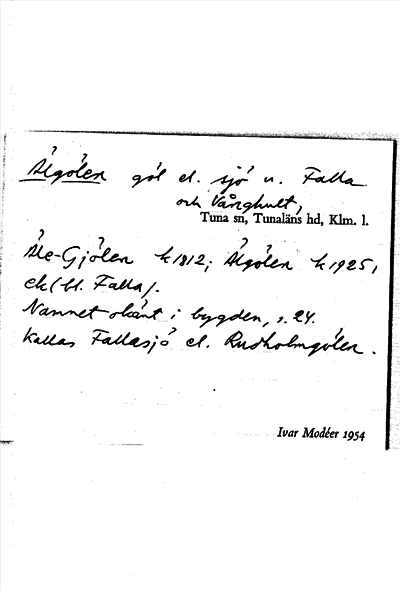 Ålgölen göl el. sjö u. Falla
och Vånghult,
Tuna sn, Tunaläns hd, Klm. l.
Åle-Gjölen k 1812; Ålgölen k 1925,
ek (bl. Falla).
Namnet okänt i bygden, s. 24.
Kallas Fallasjö el. Rusholmgölen.
Ivar Modéer 1954